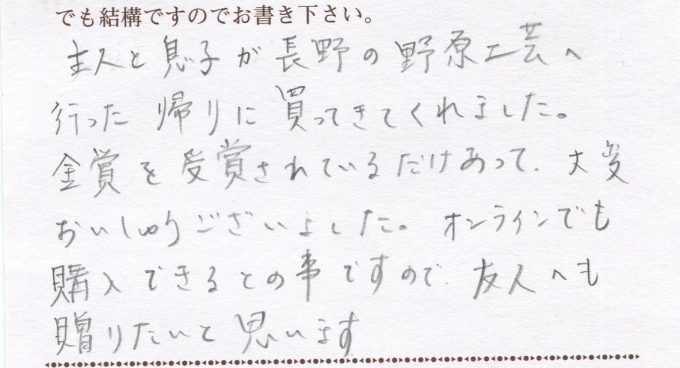 でも結構ですのでお書き下さい。
主人と息子が長野の野原工芸へ
行った帰りに買ってきてくれました。
金賞を受賞されているだけあって、大変
おいしゅうございました。オンラインでも
購入できるとの事ですので、友人へも
贈りたいと思います